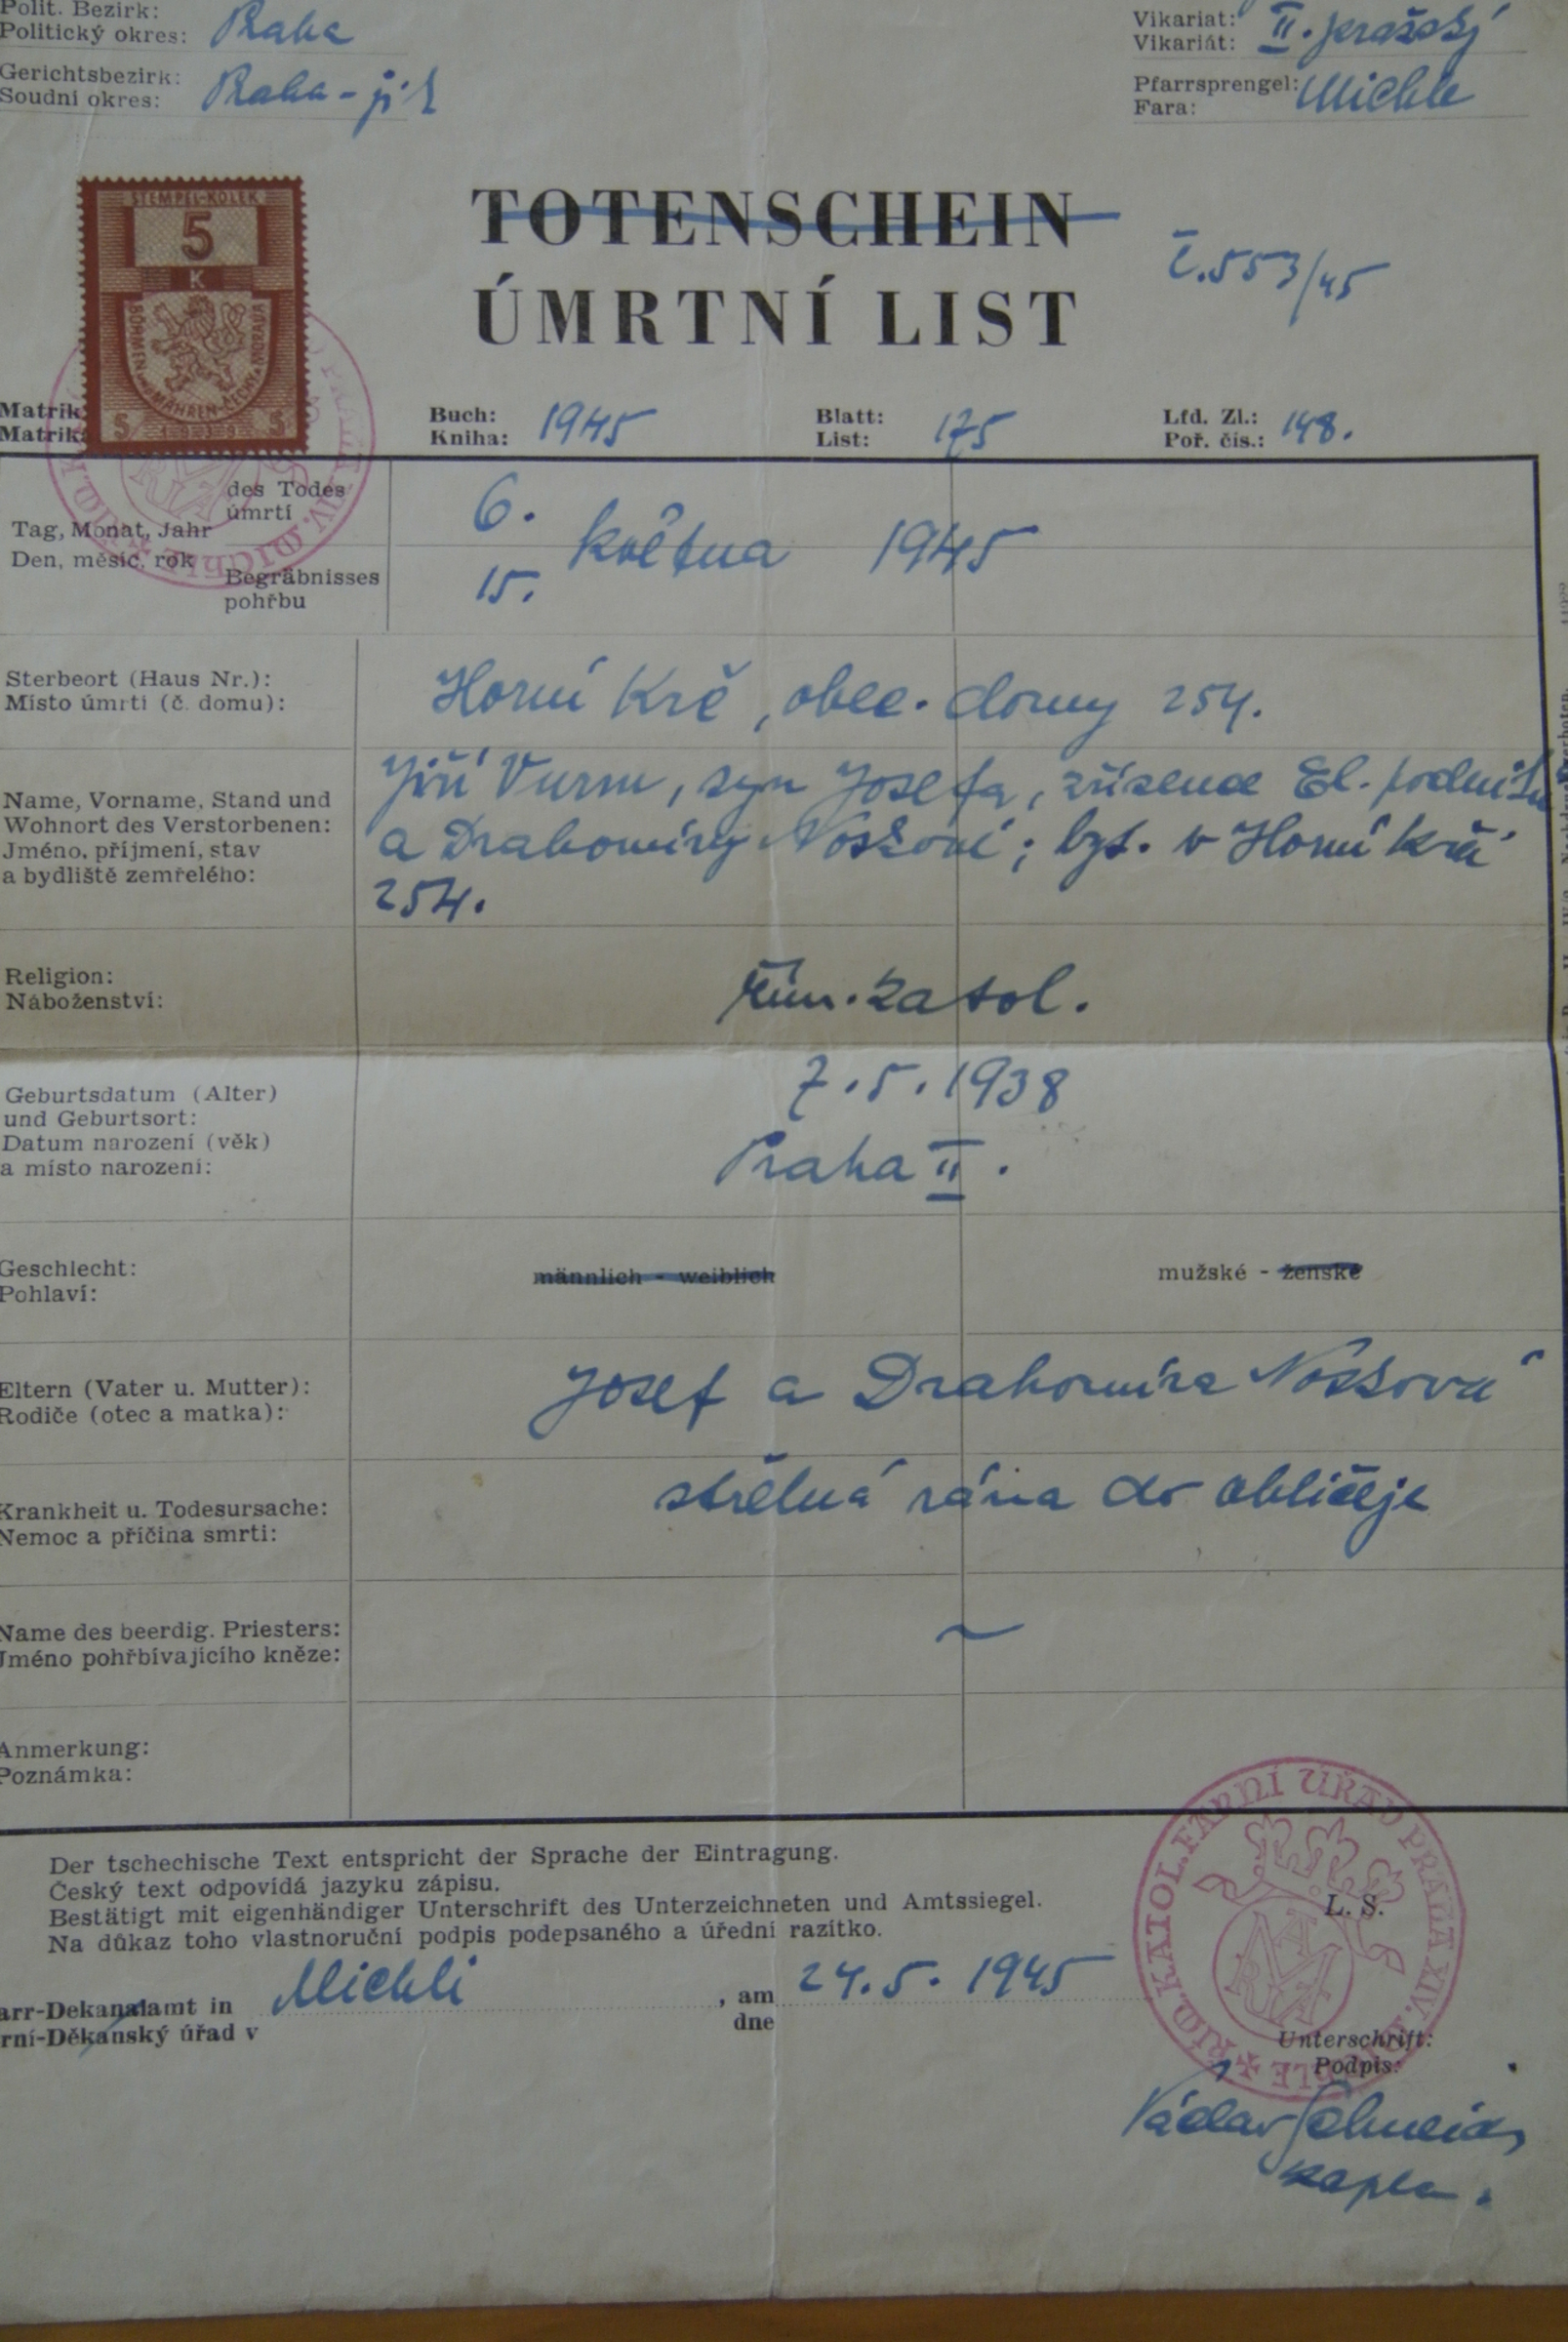 Polit. Bezirk:
Politický okres: Praha
Gerichtsbezirk:
Soudní okres: Praha - jih
Vikariat:
Vikariát: II. pražský
Pfarrsprengel:
Fara: Michle
STEMPEL-KOLEK
5
K
BÖHMEN und MÄHREN-ČECHY a MORAVA
5 1939 5
TOTENSCHEIN
ÚMRTNÍ LIST
č. 553/45
Matrik
Matrika
Buch:
Kniha: 1945
Blatt:
List: 175
Lfd. Zl.:
Poř. čís.: 148.
Tag, Monat, Jahr
Den, měsíc, rok
des Todes
úmrtí
6.
května 1945
Begräbnisses
pohřbu
15.
Sterbeort (Haus Nr.):
Místo úmrtí (č. domu):
Horní Krč, obec. domy 254.
Name, Vorname, Stand und
Wohnort des Verstorbenen:
Jméno, příjmení, stav
a bydliště zemřelého:
Jiří Vurm, syn Josefa, zřízence El. podniků
a Drahomíry; byt. v Horní Krči
254.
Religion:
Náboženství:
řím. katol.
Geburtsdatum (Alter)
und Geburtsort:
Datum narození (věk)
a místo narození:
7. 5. 1938
Praha II.
Geschlecht:
Pohlaví:
männlich - weiblich
mužské - ženské
Eltern (Vater u. Mutter):
Rodiče (otec a matka):
Josef a Drahomíra
Krankheit u. Todesursache:
Nemoc a příčina smrti:
střelná rána do obličeje
Name des beerdig. Priesters:
Jméno pohřbívajícího kněze:
~
Anmerkung:
Poznámka:
Der tschechische Text entspricht der Sprache der Eintragung.
Český text odpovídá jazyku zápisu.
Bestätigt mit eigenhändiger Unterschrift des Unterzeichneten und Amtssiegel.
Na důkaz toho vlastnoruční podpis podepsaného a úřední razítko.
arr-Dekanalamt in
rní-Děkanský úřad v
Michli
, am
dne
24. 5. 1945
ŘÍM. KATOL. FARNÍ ÚŘAD PRAHA XIV. MICHLE
L. S.
Unterschrift:
Podpis:
Václav
kaplan.